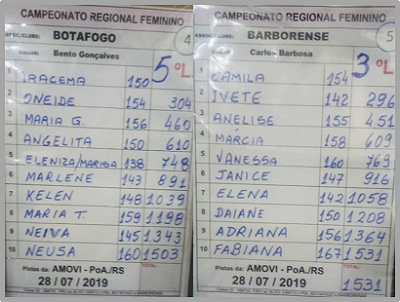 CAMPEONATO REGIONAL FEMININO
BOTAFOGO 4
CIDADE: Bento Gonçalves 5ºL.
1 IRACEMA 150
2 ONEIDE 154 304
3 MARIA G. 156 460
4 ANGELITA 150 610
5 ELENIZA/MARISA 138 748
6 MARLENE 143 891
7 KELEN 148 1039
8 MARIA T. 159 1198
9 NEIVA 145 1343
10 NEUSA 160 1503
TOTAL
Pistas da: AMOVI - PoA./RS
28 / 07 / 2019
CAMPEONATO REGIONAL FEMININO
ASSOC./CLUBE: BARBORENSE 5
CIDADE: Carlos Barbosa 3ºL.
1 CAMILA 154
2 IVETE 142 296
3 ANELISE 155 451
4 MÁRCIA 158 609
5 VANESSA 160 769
6 JANICE 147 916
7 ELENA 142 1058
8 DAIANE 150 1208
9 ADRIANA 156 1364
10 FABIANA 167 1531
Pistas da: AMOVI - PoA./RS TOTAL
28 / 07 / 2019 1531